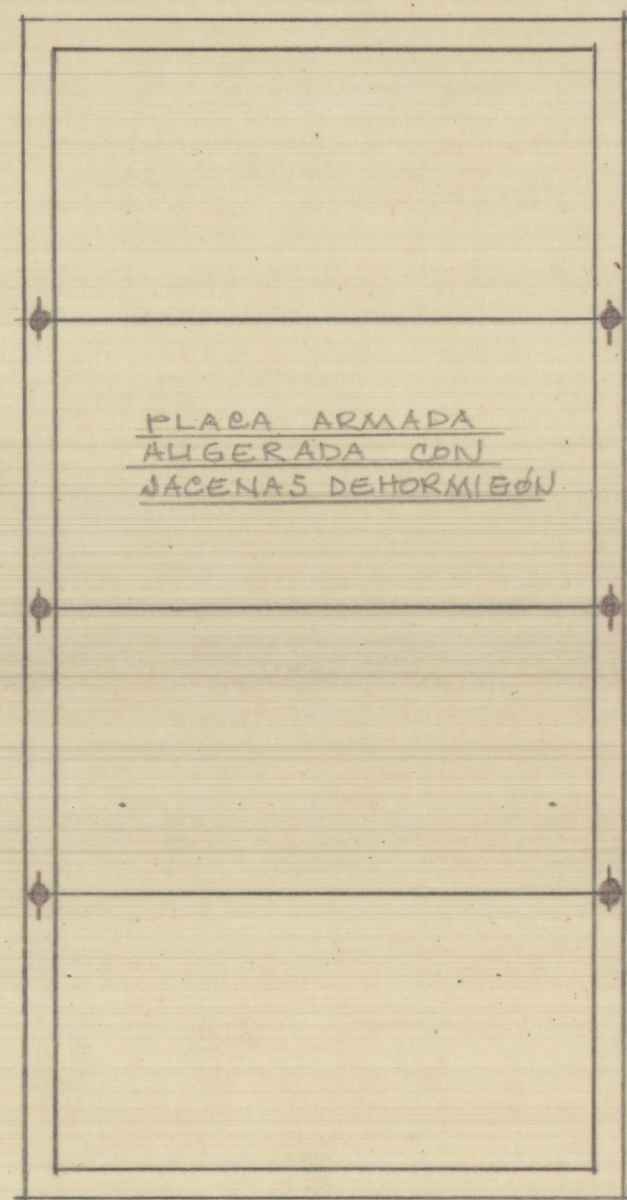 PLACA ARMADA
ALIGERADA CON
JACENAS DE HORMIGÓN